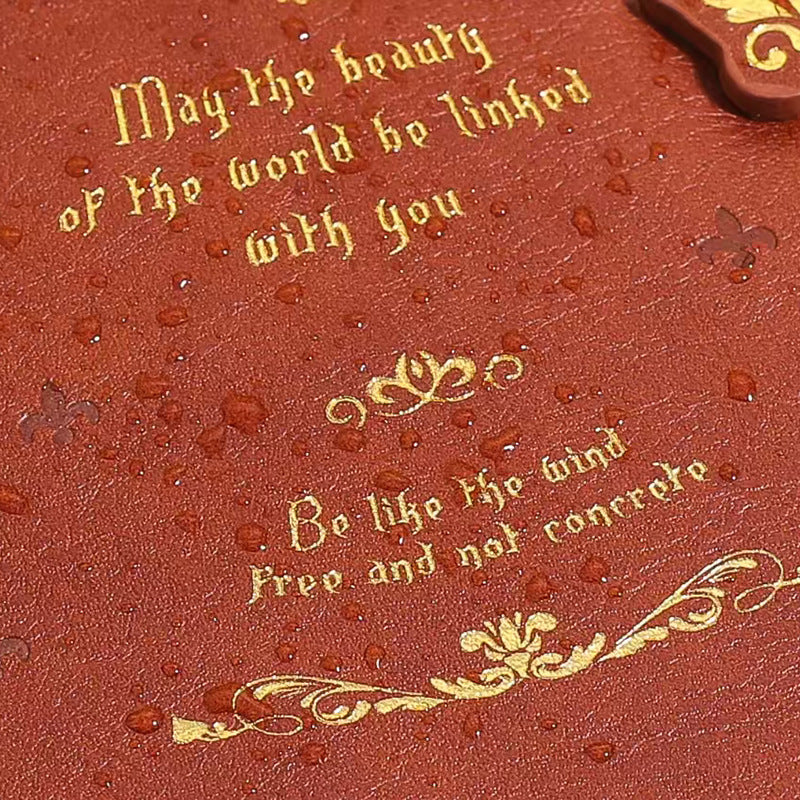 May the beauty
of the world be linked
with you
Be like the wind
free and not concrete